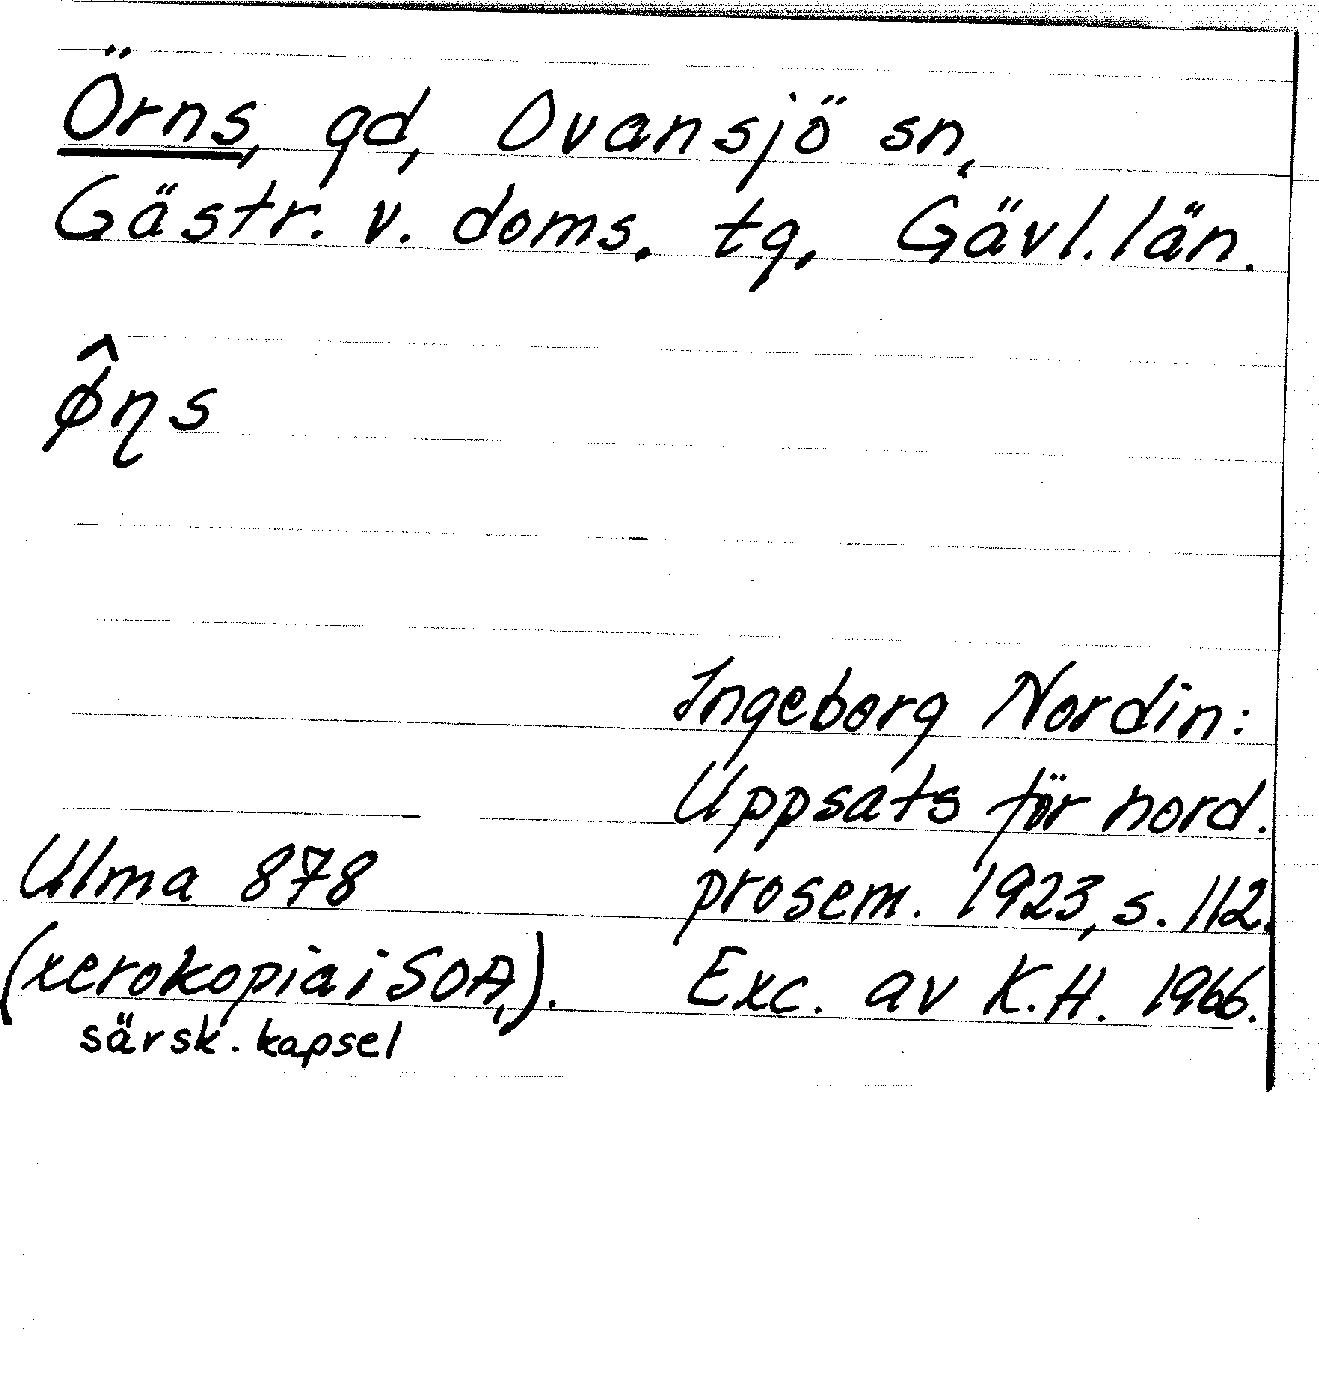 Örns, gd, Ovansjö sn,
Gästr. v. doms. tg, Gävl. län.
ø̂ɳs
Ingeborg Nordin:
Uppsats för nord.
prosem. 1923, s. 112.
Exc. av K.H. 1966.
Ulma 878
(xerokopia i SOA,).
särsk. kapsel